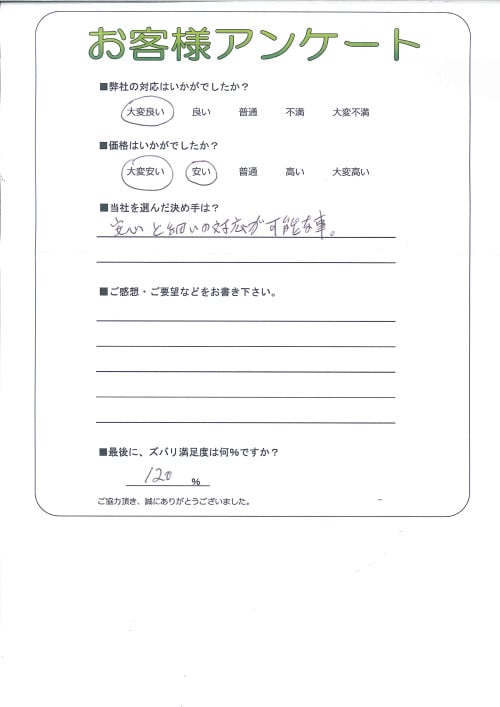 お客様アンケート
■弊社の対応はいかがでしたか？
大変良い 良い 普通 不満 大変不満
■価格はいかがでしたか？
大変安い 安い 普通 高い 大変高い
■当社を選んだ決め手は？
安心と細いの対応が可能な事。
■ご感想・ご要望などをお書き下さい。
■最後に、ズバリ満足度は何%ですか？
120 %
ご協力頂き、誠にありがとうございました。